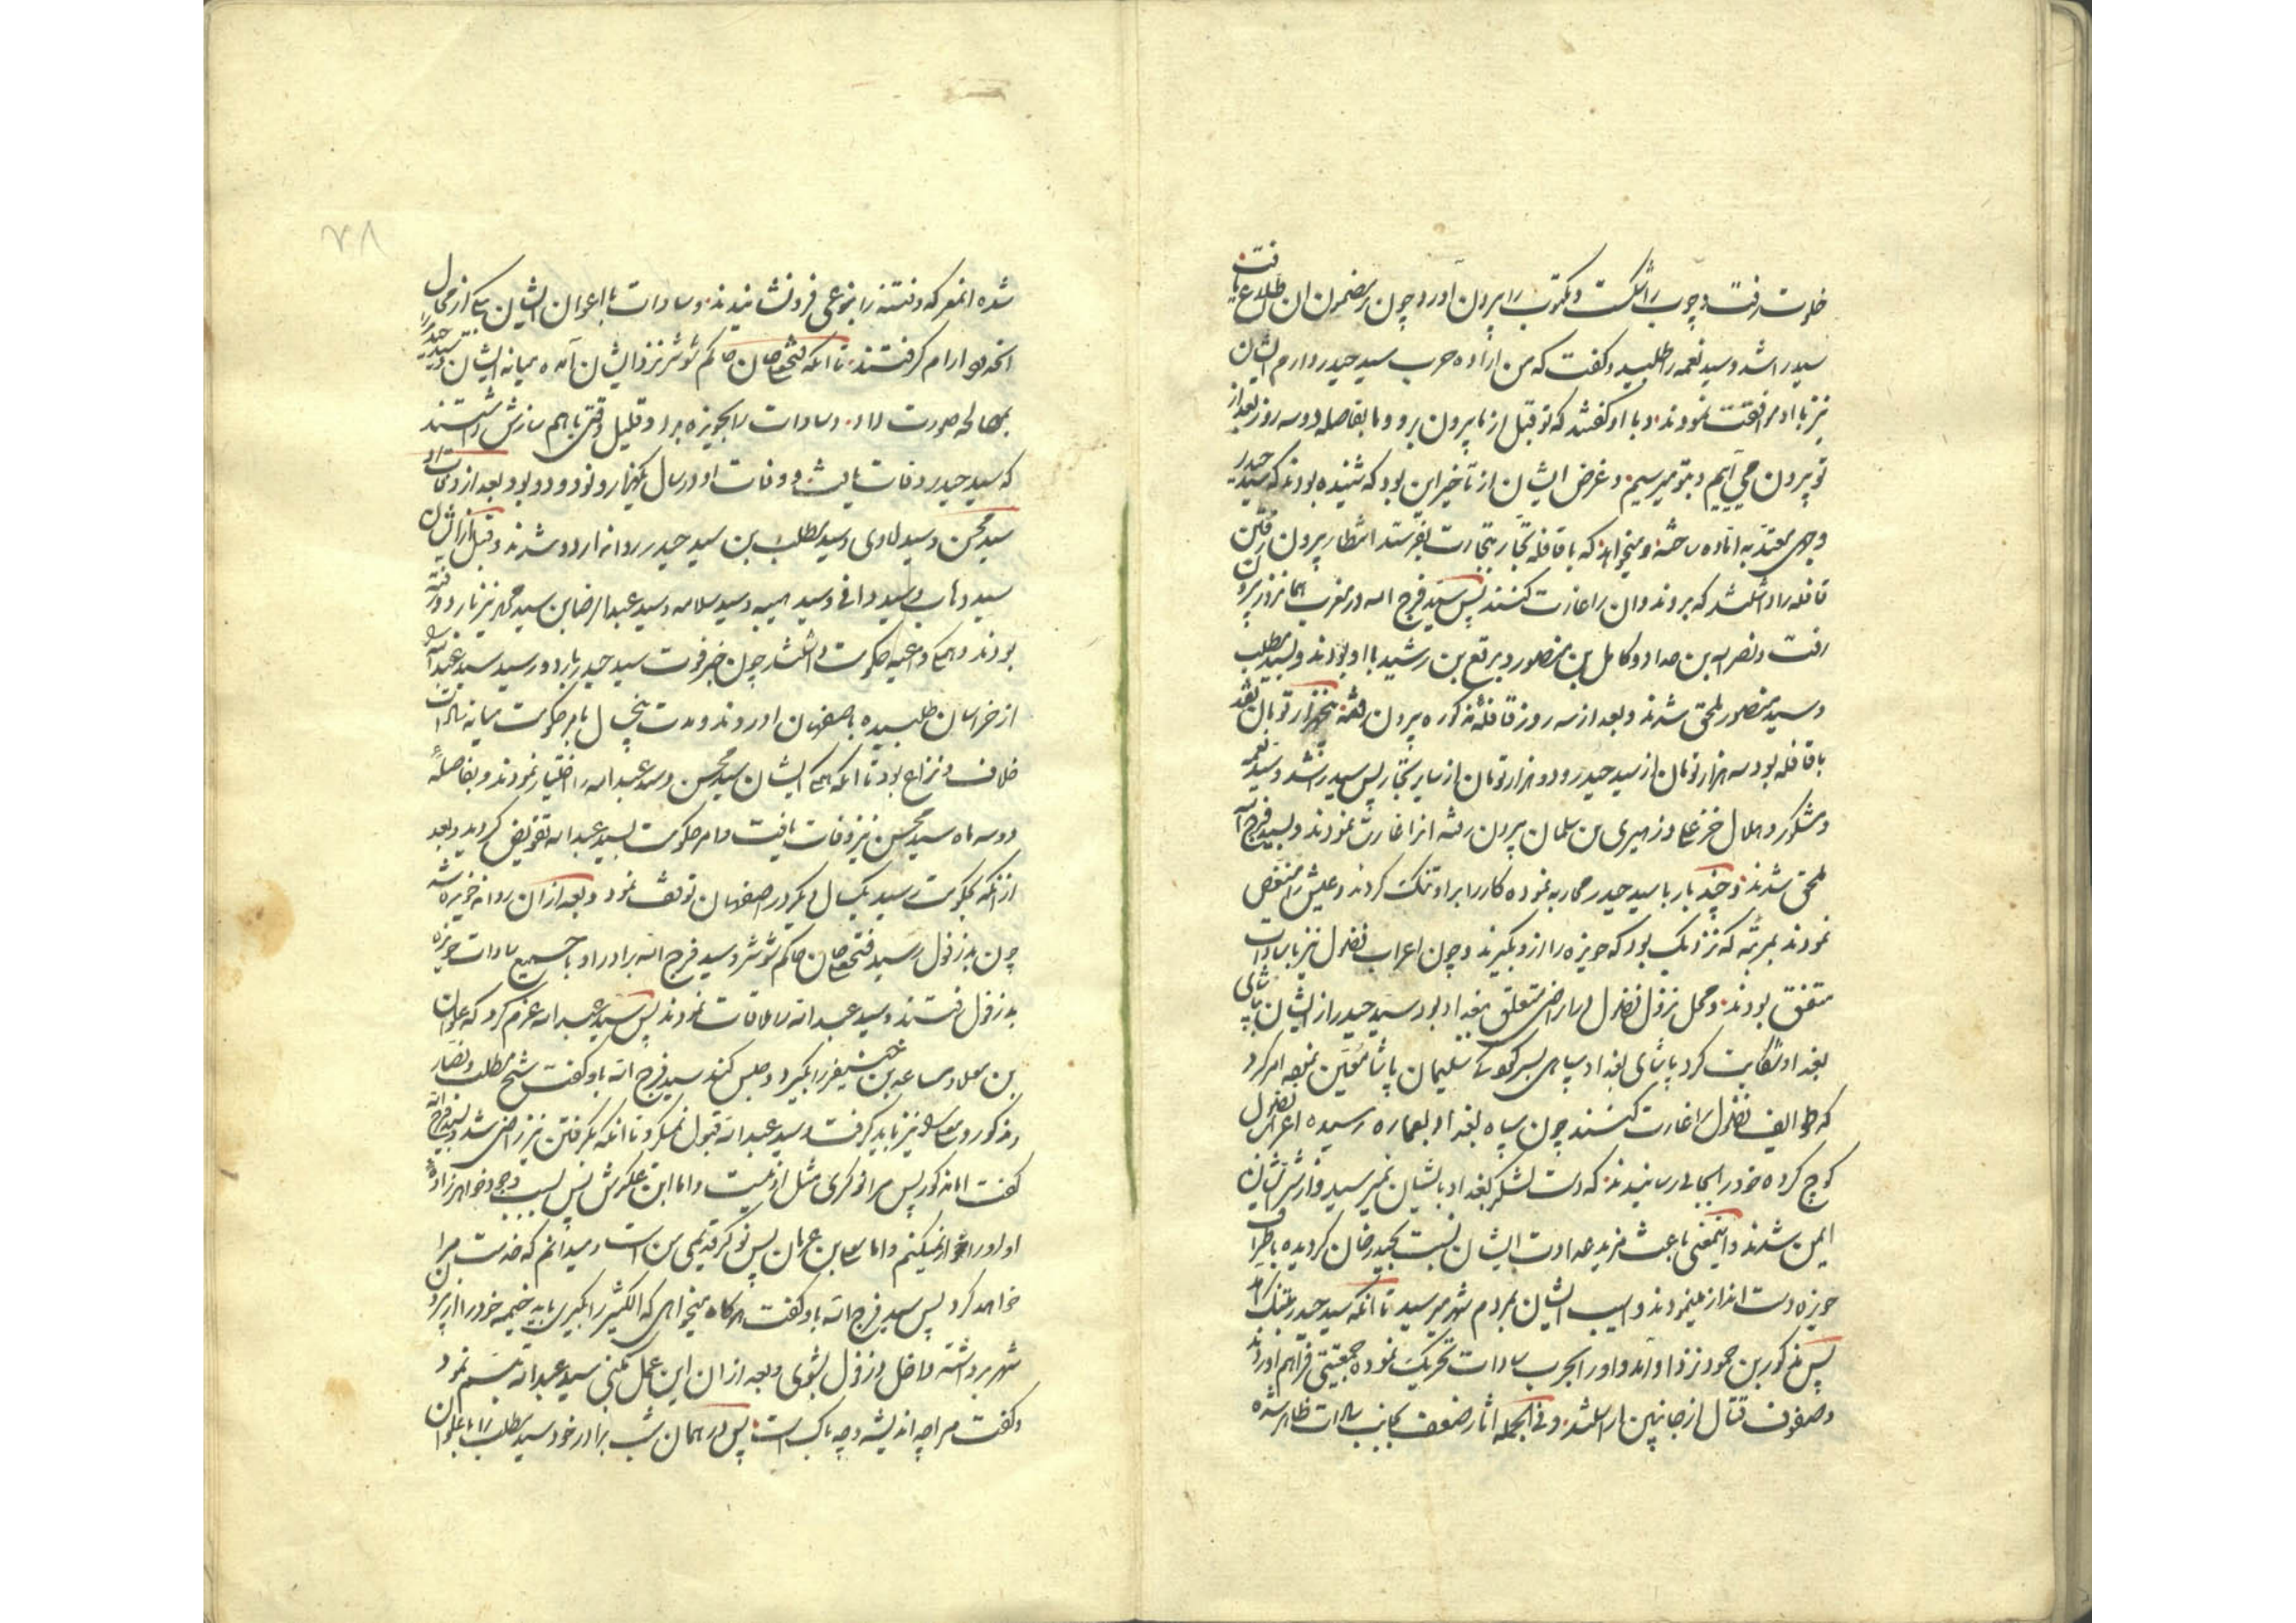 خلوت رفت و چوب را شکست و مکتوب را بیرون آورد و چون بر مضمون آن اطلاع یافت
سید راشد و سید نعمه را طلبید و گفت که من اراده حرب سید حیدر دارم ایشان
نیز با او مرافقت نمودند و با او گفتند که تو قبل از ما بیرون برو و ما بفاصله دو سه روز بعد از
تو بیرون می آییم و بتو میرسیم و غرض ایشان از تأخیر این بود که شنیده بودند که سید حیدر
وجهی معتد به آماده ساخته و میخواهد که با قافله تجار بتجارت بفرستد انتظار بیرون رفتن
قافله را داشتند که بروند و آن را غارت کنند پس سید فرج الله در مغرب همانروز بیرون
رفت و نصر بن مداد و کامل بن منصور و برقع بن رشید با او بودند و بسید مطلب
و سید منصور ملحق شدند و بعد از سه روز قافله مذکوره بیرون رفته پنجهزار تومان نقد
با قافله بود سه هزار تومان از سید حیدر و دو هزار تومان از سایر تجار پس سید راشد و سید نعمه
و مشکور و هلال خزعلی و زهیری بن سلمان بیرون رفته آنرا غارت نمودند و بسید فرج الله
ملحق شدند و چند بار با سید حیدر محاربه نموده کار را بر او تنگ کردند و عیش را منغص
نمودند بمرتبه که نزدیک بود که حویزه را از او بگیرند و چون اعراب فضول نیز با سادات
متفق بودند و محل نزول فضول در اراضی متعلق ببغداد بود سید حیدر از ایشان بپاشای
بغداد شکایت کرد پاشای بغداد سپاهی بسرکردگی سلیمان پاشا تعیین نموده امر کرد
که طوایف فضول را غارت کنند چون سپاه بغداد بعماره رسیده اعراب فضول
کوچ کرده خود را بجائی رسانیدند که دست لشکر بغداد بایشان نمیرسید و از شر ایشان
ایمن شدند و اینمعنی باعث مزید عداوت ایشان نسبت بحیدر خان گردیده باطراف
حویزه دست انداز مینمودند و آسیب ایشان بمردم شهر میرسید تا آنکه سید حیدر بتنگ آمد
پس مذکور بن حمود نزد او آمد و او را بحرب سادات تحریک نموده جمعیتی فراهم آوردند
و صفوف قتال از جانبین آراستند و فی الجمله آثار ضعف بجانب سادات ظاهر شده
۲۸
شده آنمعرکه و فتنه را بنوعی فرو نشانیدند و سادات با اعوان ایشان یکی از محال
آنحدود آرام گرفتند تا آنکه فتحعلیخان حاکم شوشتر نزد ایشان آمده میانه ایشان و سید حیدر را
بمصالحه صورت داد و سادات را بحویزه برد و قلیل وقتی با هم سازش داشتند
که سید حیدر وفات یافت و وفات او در سال یکهزار و نود و دو بود و بعد از وفات او
سید محسن و سید هادی و سید مطلب بن سید حیدر روانه اردو شدند و قبل از ایشان
سید وهاب و سید وافی و سید هیبه و سید سلامه و سید عبدالرضا بن سید محمد نیز باردو رفته
بودند و همه داعیه حکومت داشتند چون خبر فوت سید حیدر باردو رسید سید عبدالله را
از خراسان طلبیده باصفهان آوردند و مدت پنجسال بامر حکومت میانه سادات
خلاف و نزاع بود تا آنکه همه ایشان سید محسن و سید عبدالله را اختیار نمودند و بفاصله
دو سه ماه سید محسن نیز وفات یافت و امر حکومت بسید عبدالله تفویض گردید و بعد
از آنکه بحکومت رسید یکسال دیگر در اصفهان توقف نمود و بعد از آن روانه حویزه شد
چون بدزفول رسید فتحعلیخان حاکم شوشتر و سید فرج الله برادر او با جمیع سادات حویزه
بدزفول رفتند و سید عبدالله را ملاقات نمودند پس سید عبدالله عزم کرد که علوان
بن معلا و مساعد بن خنیفر را بگیرد و حبس کند سید فرج الله باو گفت شیخ مطلب و نصار
مذکور و عساف نیز باید گرفت و سید عبدالله قبول نمیکرد تا آنکه بگرفتن نیز راضی شد و سید فرج الله
گفت اما مذکور پس مرا نوکری مثل او نیست و اما ابن عکرش پس بسبب وجود خواهرزاده
او او را خوار نمیکنم و اما عساف بن عریان پس نوکر قدیمی من است و میدانم که خدمت مرا
خواهد کرد پس سید فرج الله باو گفت هرگاه میخواهی که الکثیر را بگیری باید خیمه خود را از بیرون
شهر برداشته داخل دزفول بشوی و بعد از آن این عمل بکنی سید عبدالله تبسم نمود
و گفت مرا چه اندیشه و چه باک است پس در همان شب برادر خود سید مطلب را با علوان